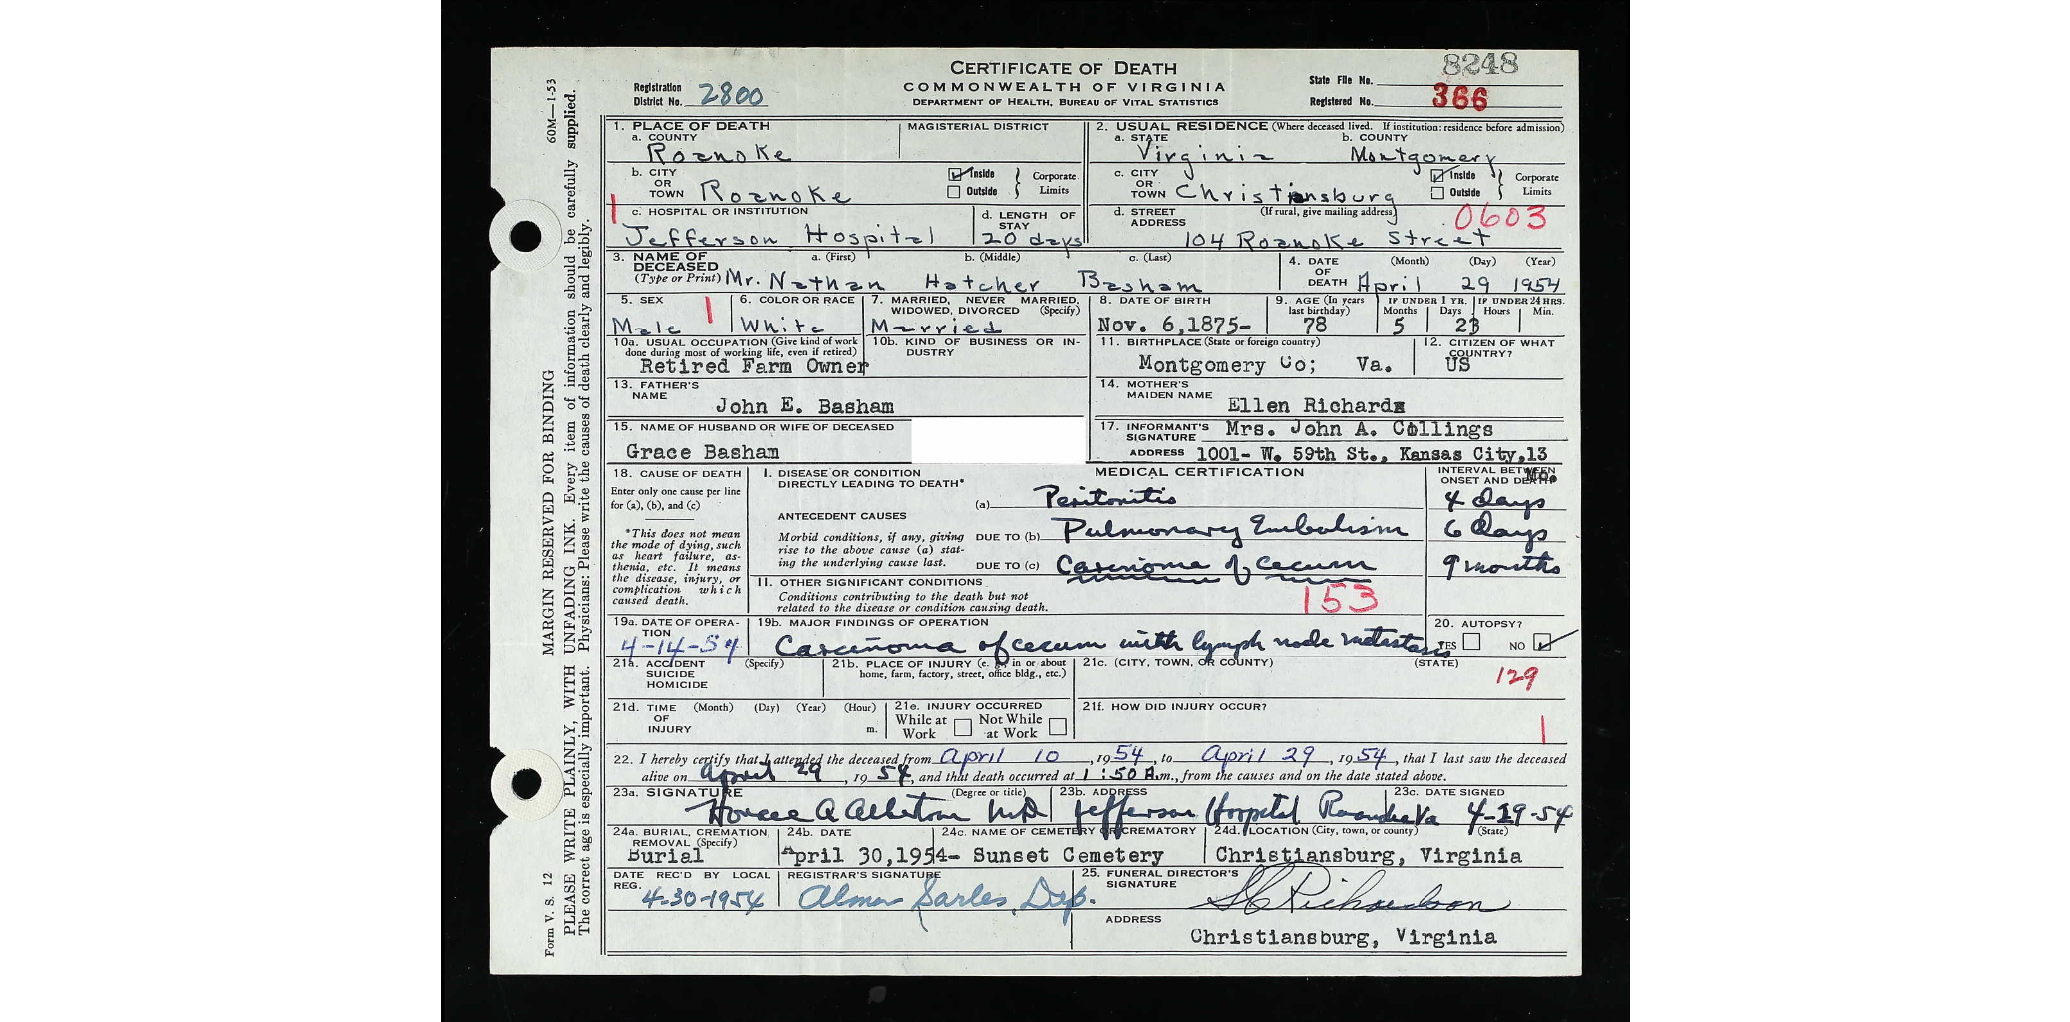 CERTIFICATE OF DEATH
COMMONWEALTH OF VIRGINIA
DEPARTMENT OF HEALTH, BUREAU OF VITAL STATISTICS
Registration District No. 2800
State File No. 8248
Registered No. 366
1. PLACE OF DEATH
a. COUNTY Roanoke
MAGISTERIAL DISTRICT
2. USUAL RESIDENCE (Where deceased lived. If institution: residence before admission)
a. STATE Virginia
b. COUNTY Montgomery
b. CITY OR TOWN Roanoke
Inside Outside Corporate Limits
c. CITY OR TOWN Christiansburg
Inside Outside Corporate Limits
c. HOSPITAL OR INSTITUTION
Jefferson Hospital
d. LENGTH OF STAY
20 days
d. STREET ADDRESS (If rural, give mailing address)
0603
104 Roanoke Street
3. NAME OF DECEASED (Type or Print)
a. (First) b. (Middle) c. (Last)
Mr. Nathan Hatcher Basham
4. DATE OF DEATH (Month) (Day) (Year)
April 29 1954
5. SEX
Male
6. COLOR OR RACE
White
7. MARRIED, NEVER MARRIED, WIDOWED, DIVORCED (Specify)
Married
8. DATE OF BIRTH
Nov. 6,1875-
9. AGE (In years last birthday)
78
IF UNDER 1 YR. Months Days
5 23
IF UNDER 24 HRS. Hours Min.
10a. USUAL OCCUPATION (Give kind of work done during most of working life, even if retired)
Retired Farm Owner
10b. KIND OF BUSINESS OR INDUSTRY
11. BIRTHPLACE (State or foreign country)
Montgomery Co; Va.
12. CITIZEN OF WHAT COUNTRY?
US
13. FATHER'S NAME
John E. Basham
14. MOTHER'S MAIDEN NAME
Ellen Richards
15. NAME OF HUSBAND OR WIFE OF DECEASED
Grace Basham
17. INFORMANT'S SIGNATURE Mrs. John A. Collings
ADDRESS 1001- W. 59th St., Kansas City,13 Mo.
18. CAUSE OF DEATH
Enter only one cause per line for (a), (b), and (c)
*This does not mean the mode of dying, such as heart failure, asthenia, etc. It means the disease, injury, or complication which caused death.
MEDICAL CERTIFICATION
INTERVAL BETWEEN ONSET AND DEATH
I. DISEASE OR CONDITION DIRECTLY LEADING TO DEATH*
(a) Peritonitis 4 days
ANTECEDENT CAUSES
Morbid conditions, if any, giving rise to the above cause (a) stating the underlying cause last.
DUE TO (b) Pulmonary Embolism 6 days
DUE TO (c) Carcinoma of cecum 9 months
II. OTHER SIGNIFICANT CONDITIONS
Conditions contributing to the death but not related to the disease or condition causing death.
153
19a. DATE OF OPERATION
4-14-54
19b. MAJOR FINDINGS OF OPERATION
Carcinoma of cecum with lymph node metastasis
20. AUTOPSY?
YES NO
21a. ACCIDENT SUICIDE HOMICIDE (Specify)
21b. PLACE OF INJURY (e. g., in or about home, farm, factory, street, office bldg., etc.)
21c. (CITY, TOWN, OR COUNTY) (STATE)
129
21d. TIME OF INJURY (Month) (Day) (Year) (Hour) m.
21e. INJURY OCCURRED
While at Work Not While at Work
21f. HOW DID INJURY OCCUR?
22. I hereby certify that I attended the deceased from April 10, 1954, to April 29, 1954, that I last saw the deceased
alive on April 29, 1954, and that death occurred at 1:50 A.m., from the causes and on the date stated above.
23a. SIGNATURE (Degree or title)
Horace A Albertson M.D.
23b. ADDRESS
Jefferson Hospital Roanoke Va
23c. DATE SIGNED
4-29-54
24a. BURIAL, CREMATION REMOVAL (Specify)
Burial
24b. DATE
April 30,1954-
24c. NAME OF CEMETERY OR CREMATORY
Sunset Cemetery
24d. LOCATION (City, town, or county) (State)
Christiansburg, Virginia
DATE REC'D BY LOCAL REG.
4-30-1954
REGISTRAR'S SIGNATURE
Alma Sarles, Dep.
25. FUNERAL DIRECTOR'S SIGNATURE
Richardson
ADDRESS
Christiansburg, Virginia
60M—1-53
MARGIN RESERVED FOR BINDING
Form V. S. 12
PLEASE WRITE PLAINLY, WITH UNFADING INK. Every item of information should be carefully supplied.
The correct age is especially important. Physicians: Please write the causes of death clearly and legibly.